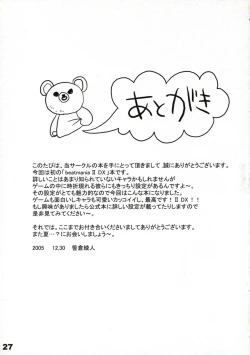 あとがき
このたびは、当サークルの本を手にとって頂きまして、誠にありがとうございます。
今回は初の「beatmania II DX」本です。
詳しいことはあまり知られていないキャラかもしれませんが
ゲームの中に時折現れる彼らにもきっちり設定があるんですよ~。
その設定がとても魅力的なので今回はこんな本になりました。
ゲームも面白いしキャラも可愛くカッコイイし、最高です!II DX!!
もし興味がありましたら公式本に詳しい設定が載ってたりしますので
是非見てみてください~。
それでは、ここまでお付き合いくださいましてありがとうございます。
また夏…?にお会いしましょう~。
2005 12,30
27